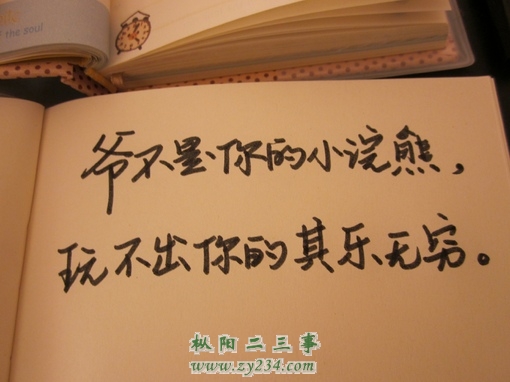 of the soul
爷不是你的小浣熊，
玩不出你的其乐无穷。
枞阳二三事
www.zy234.com